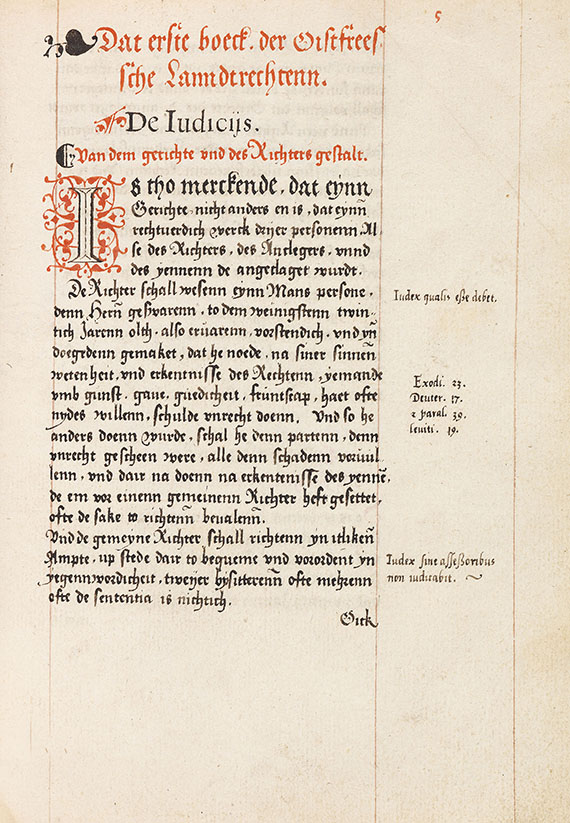 5
Dat erste boeck. der Oistfrees-
sche Lanndtrechtenn.
De Iudicijs.
Van dem gerichte vnd des Richters gestalt.
Is tho merckende, dat eynn
Gerichte, nicht anders en is, dat eynn
rechtuerdich werck drijer personenn, Al
se des Richters, des Anclegers, vnnd
des yennenn de angeclaget wurdt.
De Richter schall wesenn eynn Mans persone,
denn Hern̄ geswarenn, to dem weinigstenn twin-
tich Jarenn olth, also eruarenn, vorstendich, vnd yn̄
doegedenn gemaket, dat he noede, na siner sinnen̄
wetenheit, vnd erkentenisse des Rechtenn, yemande
vmb gunst, gaue, giedicheit, frūntscap, haet ofte
nydes willenn, schulde vnrecht doenn. Vnd so he
anders doenn wurde, schal he denn partenn, denn
vnrecht gescheen were, alle denn schadenn voruul
lenn, vnd dair na doenn na erkentenisse des yenne,
de em vor einenn gemeinenn Richter heft gesettet,
ofte de sake to richtenn beualenn̄.
Vnd de gemeyne Richter schall richtenn yn itliken̄
Ampte, vp stede dair to bequeme vnd vorordent yn
yegennwordicheit, tweyer bysitterenn̄ ofte mehrenn
ofte de sententia is nichtich.
Oick
Iudex qualis esse debet.
Exodi. 23.
Deuter. 17.
2 paral. 39.
leuiti. 19.
Iudex sine assessoribus
non iudicabit.